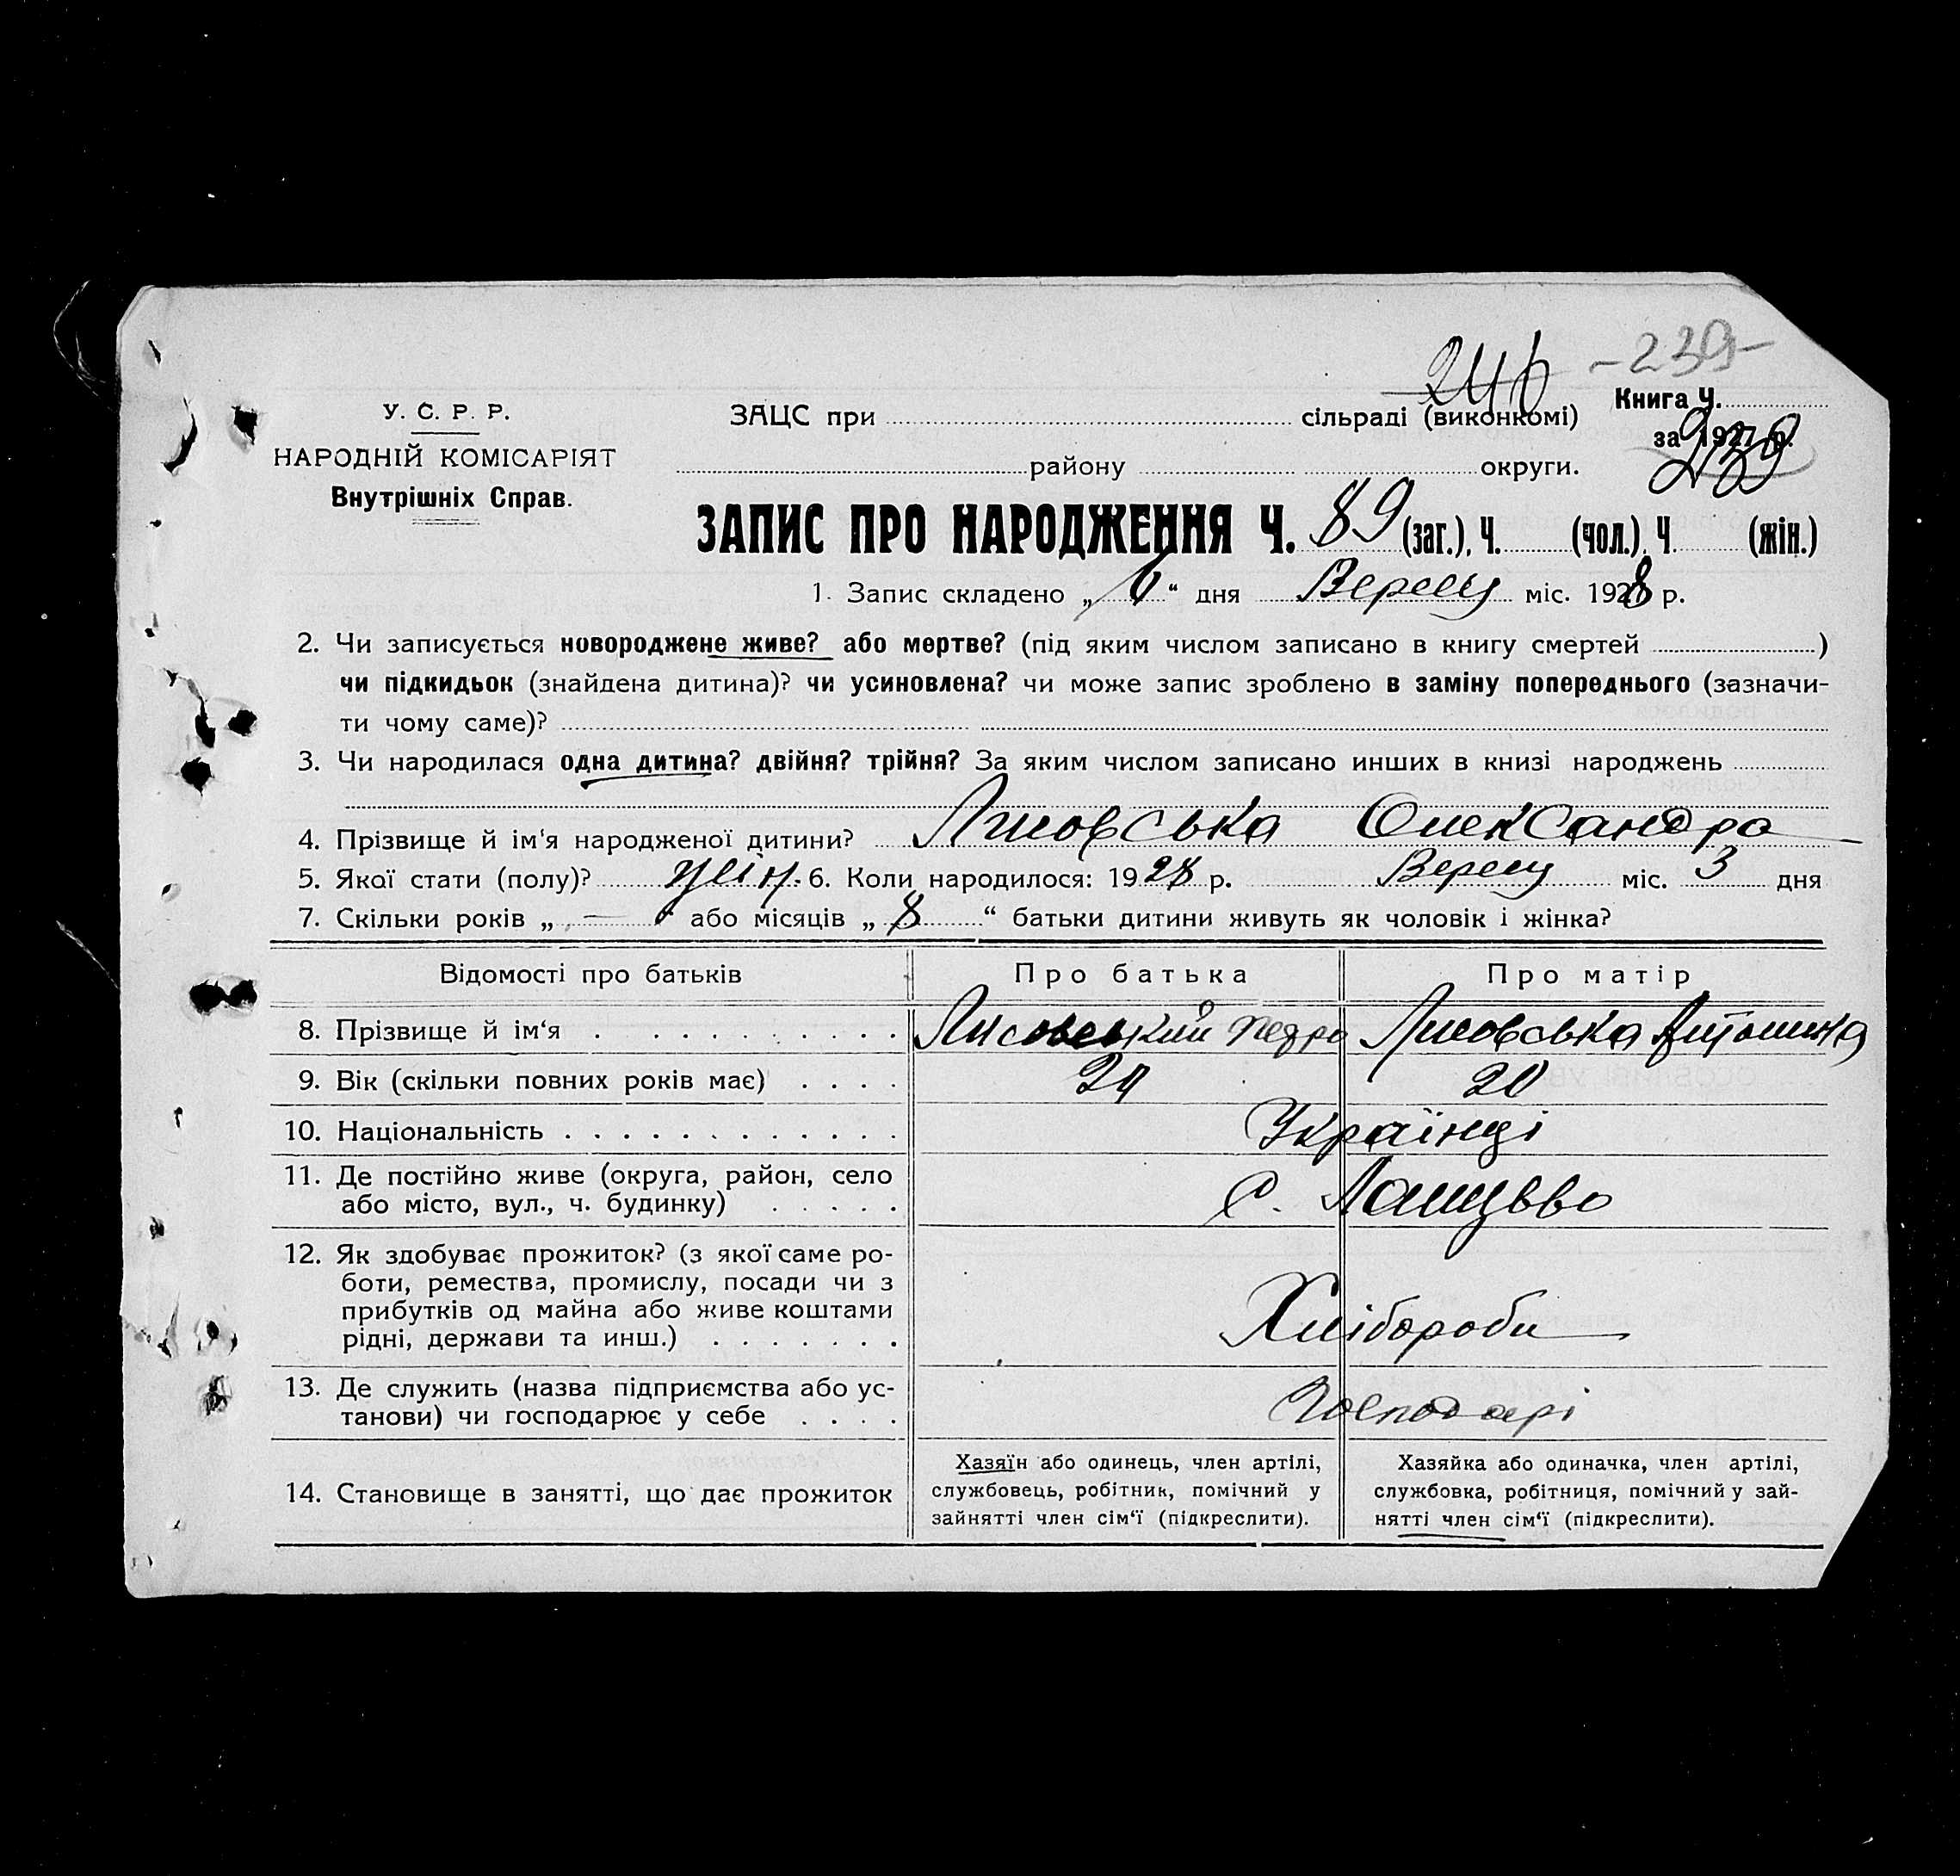 -239-
246
У. С. Р. Р.
НАРОДНІЙ КОМІСАРІЯТ
Внутрішніх Справ.
ЗАЦС при сільраді (виконкомі)
району округи.
Книга Ч.
за 1927 р.
239
ЗАПИС ПРО НАРОДЖЕННЯ Ч. 89 (заг.), Ч. (чол.), Ч. (жін.)
1. Запис складено „ 6 “ дня міс. 1928 р.
2. Чи записується новороджене живе? або мертве? (під яким числом записано в книгу смертей )
чи підкидьок (знайдена дитина)? чи усиновлена? чи може запис зроблено в заміну попереднього (зазначи-
ти чому саме)?
3. Чи народилася одна дитина? двійня? трійня? За яким числом записано инших в книзі народжень
4. Прізвище й ім‘я народженої дитини? Лисовська Олександра
5. Якої стати (полу)? жін. 6. Коли народилося: 1928 р. міс. 3 дня
7. Скільки років „ — “ або місяців „ 8 “ батьки дитини живуть як чоловік і жінка?
Відомості про батьків Про батька Про матір
8. Прізвище й ім‘я Лисовський Педро Лисовська Антонина
9. Вік (скільки повних років має) 24 20
10. Національність Українці
11. Де постійно живе (округа, район, село
або місто, вул., ч. будинку) с.
12. Як здобуває прожиток? (з якої саме ро-
боти, ремества, промислу, посади чи з
прибутків од майна або живе коштами
рідні, держави та инш.) Хлібороби
13. Де служить (назва підприємства або ус-
танови) чи господарює у себе Господарі
14. Становище в занятті, що дає прожиток
Хазяїн або одинець, член артілі,
службовець, робітник, помічний у
зайнятті член сім‘ї (підкреслити).
Хазяйка або одиначка, член артілі,
службовка, робітниця, помічний у зай-
нятті член сім‘ї (підкреслити).